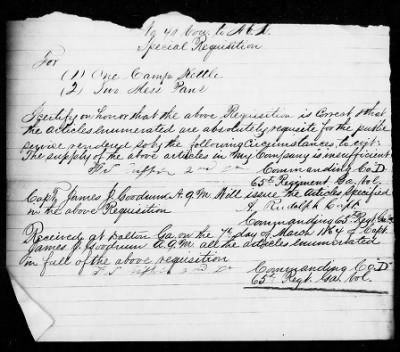 No 40
Special Requisition
For
(1) One Camp Kettle
(2) Two Mess Pans
I certify on honor that the above Requisition is Correct & that
the articles enumerated are absolutely requisite for the public
service rendered so by the following circumstances, to wit:
The supply of the above articles in my Company is insufficient
2nd Lt
Commanding Co. D
65th Regiment Ga. Vol
Capt James J. Goodrum A.Q.M. Will issue the articles specified
in the above Requisition
Rudolph Capt
Commanding 65th Regt
Received at Dalton Ga. on the 7th day of March 1864 of Capt
James J. Goodrum A.Q.M. all the articles enumerated
in full of the above requisition
2nd Lt
Commanding Co. D
65th Regt. Ga. Vol.